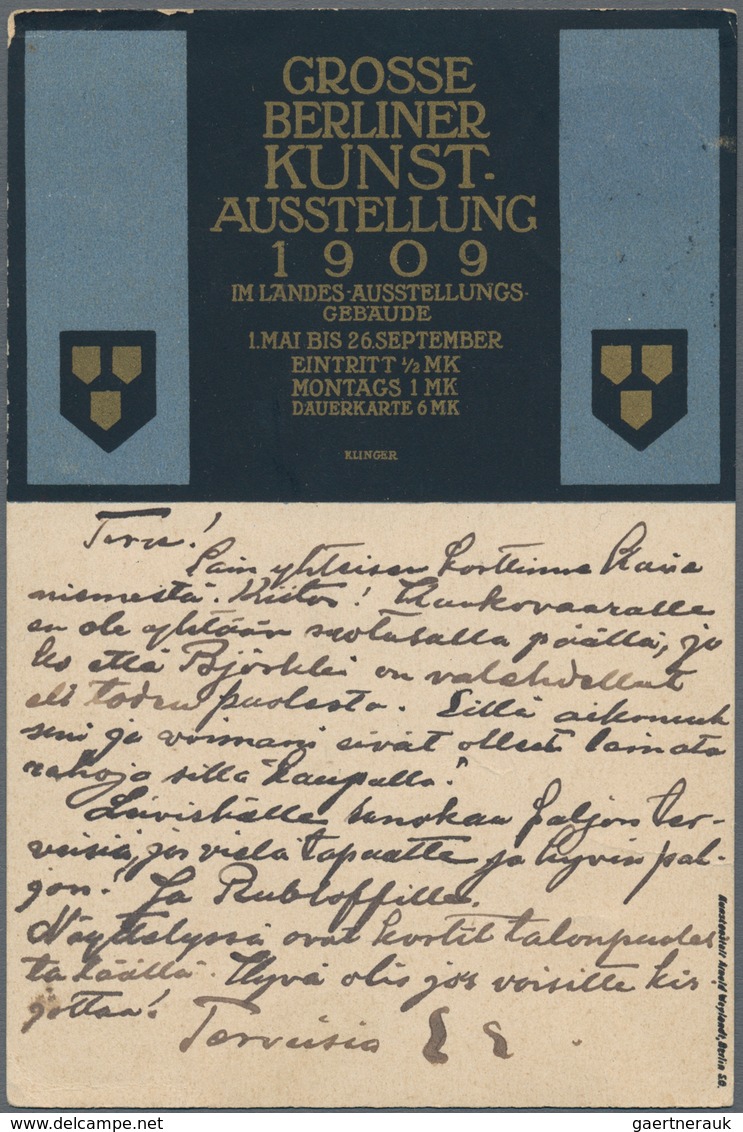 GROSSE
BERLINER
KUNST-
AUSSTELLUNG
1909
IM LANDES-AUSSTELLUNGS-
GEBÄUDE
1. MAI BIS 26. SEPTEMBER
EINTRITT ½ MK
MONTAGS 1 MK
DAUERKARTE 6 MK
KLINGER
Terve!
Sain yhteisen korttinne
niemestä. Kiitos!
en ole yhtään päällä, jo
ko että on valehdellut
eli toden puolesta. Sillä
seni ja voimani eivät olleet lainata
rahoja sillä kaupalla!
sanokaa paljon ter-
veisiä, jos vielä tapaatte ja hyvin pal-
jon! Ja Rubloffille.
Näyttelyssä ovat kortit
täällä. Hyvä olis jos voisitte kir-
jottaa!
Terveisiä
Kunstanstalt Arnold Weylandt, Berlin SO.
gaertnerauk